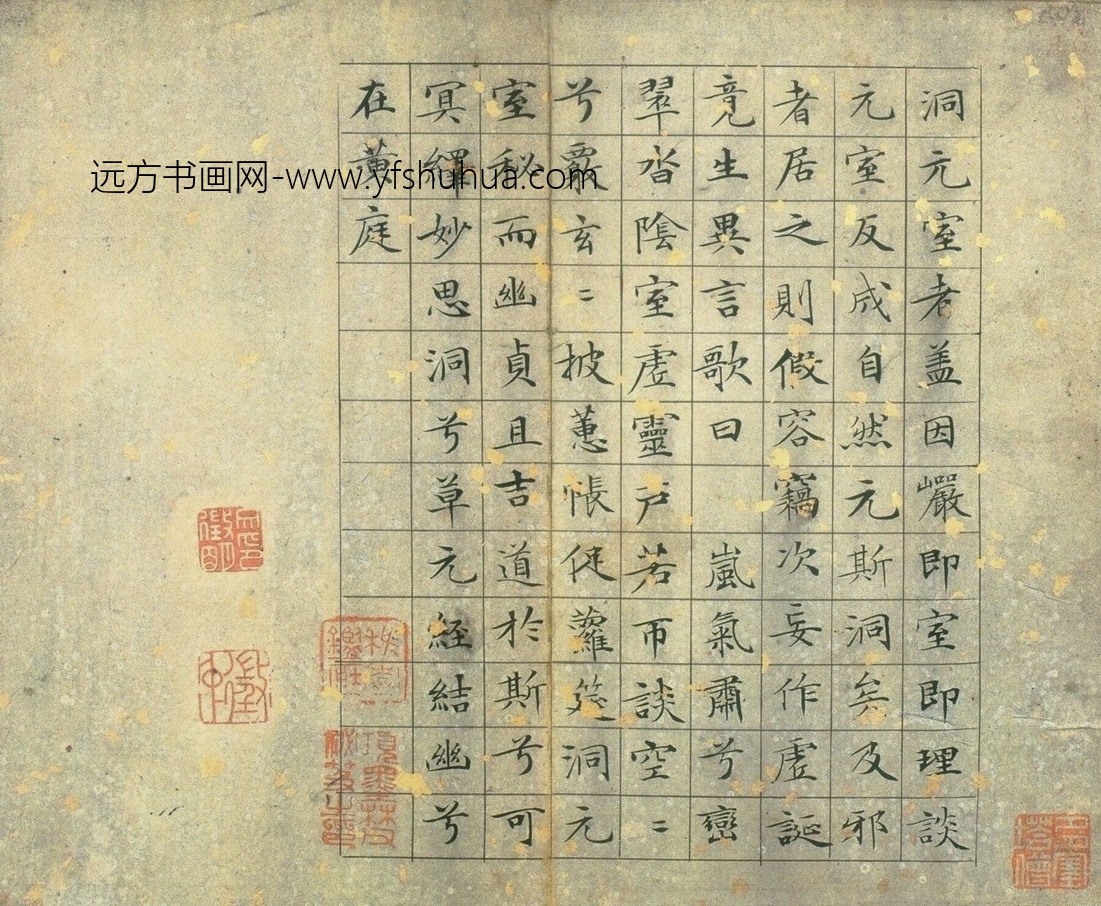 洞元室者盖因巖即室即理談
元室反成自然元斯洞矣及邪
者居之則假容竊次妄作虛誕
竟生異言歌曰 嵐氣肅兮巒
翠沓陰室虛靈戶若帀談空〻
兮覈玄〻披蕙帳促蘿筵洞元
室秘而幽貞且吉道於斯兮可
冥繹妙思洞兮草元經結幽兮
在黃庭
远方书画网-www.yfshuhua.com